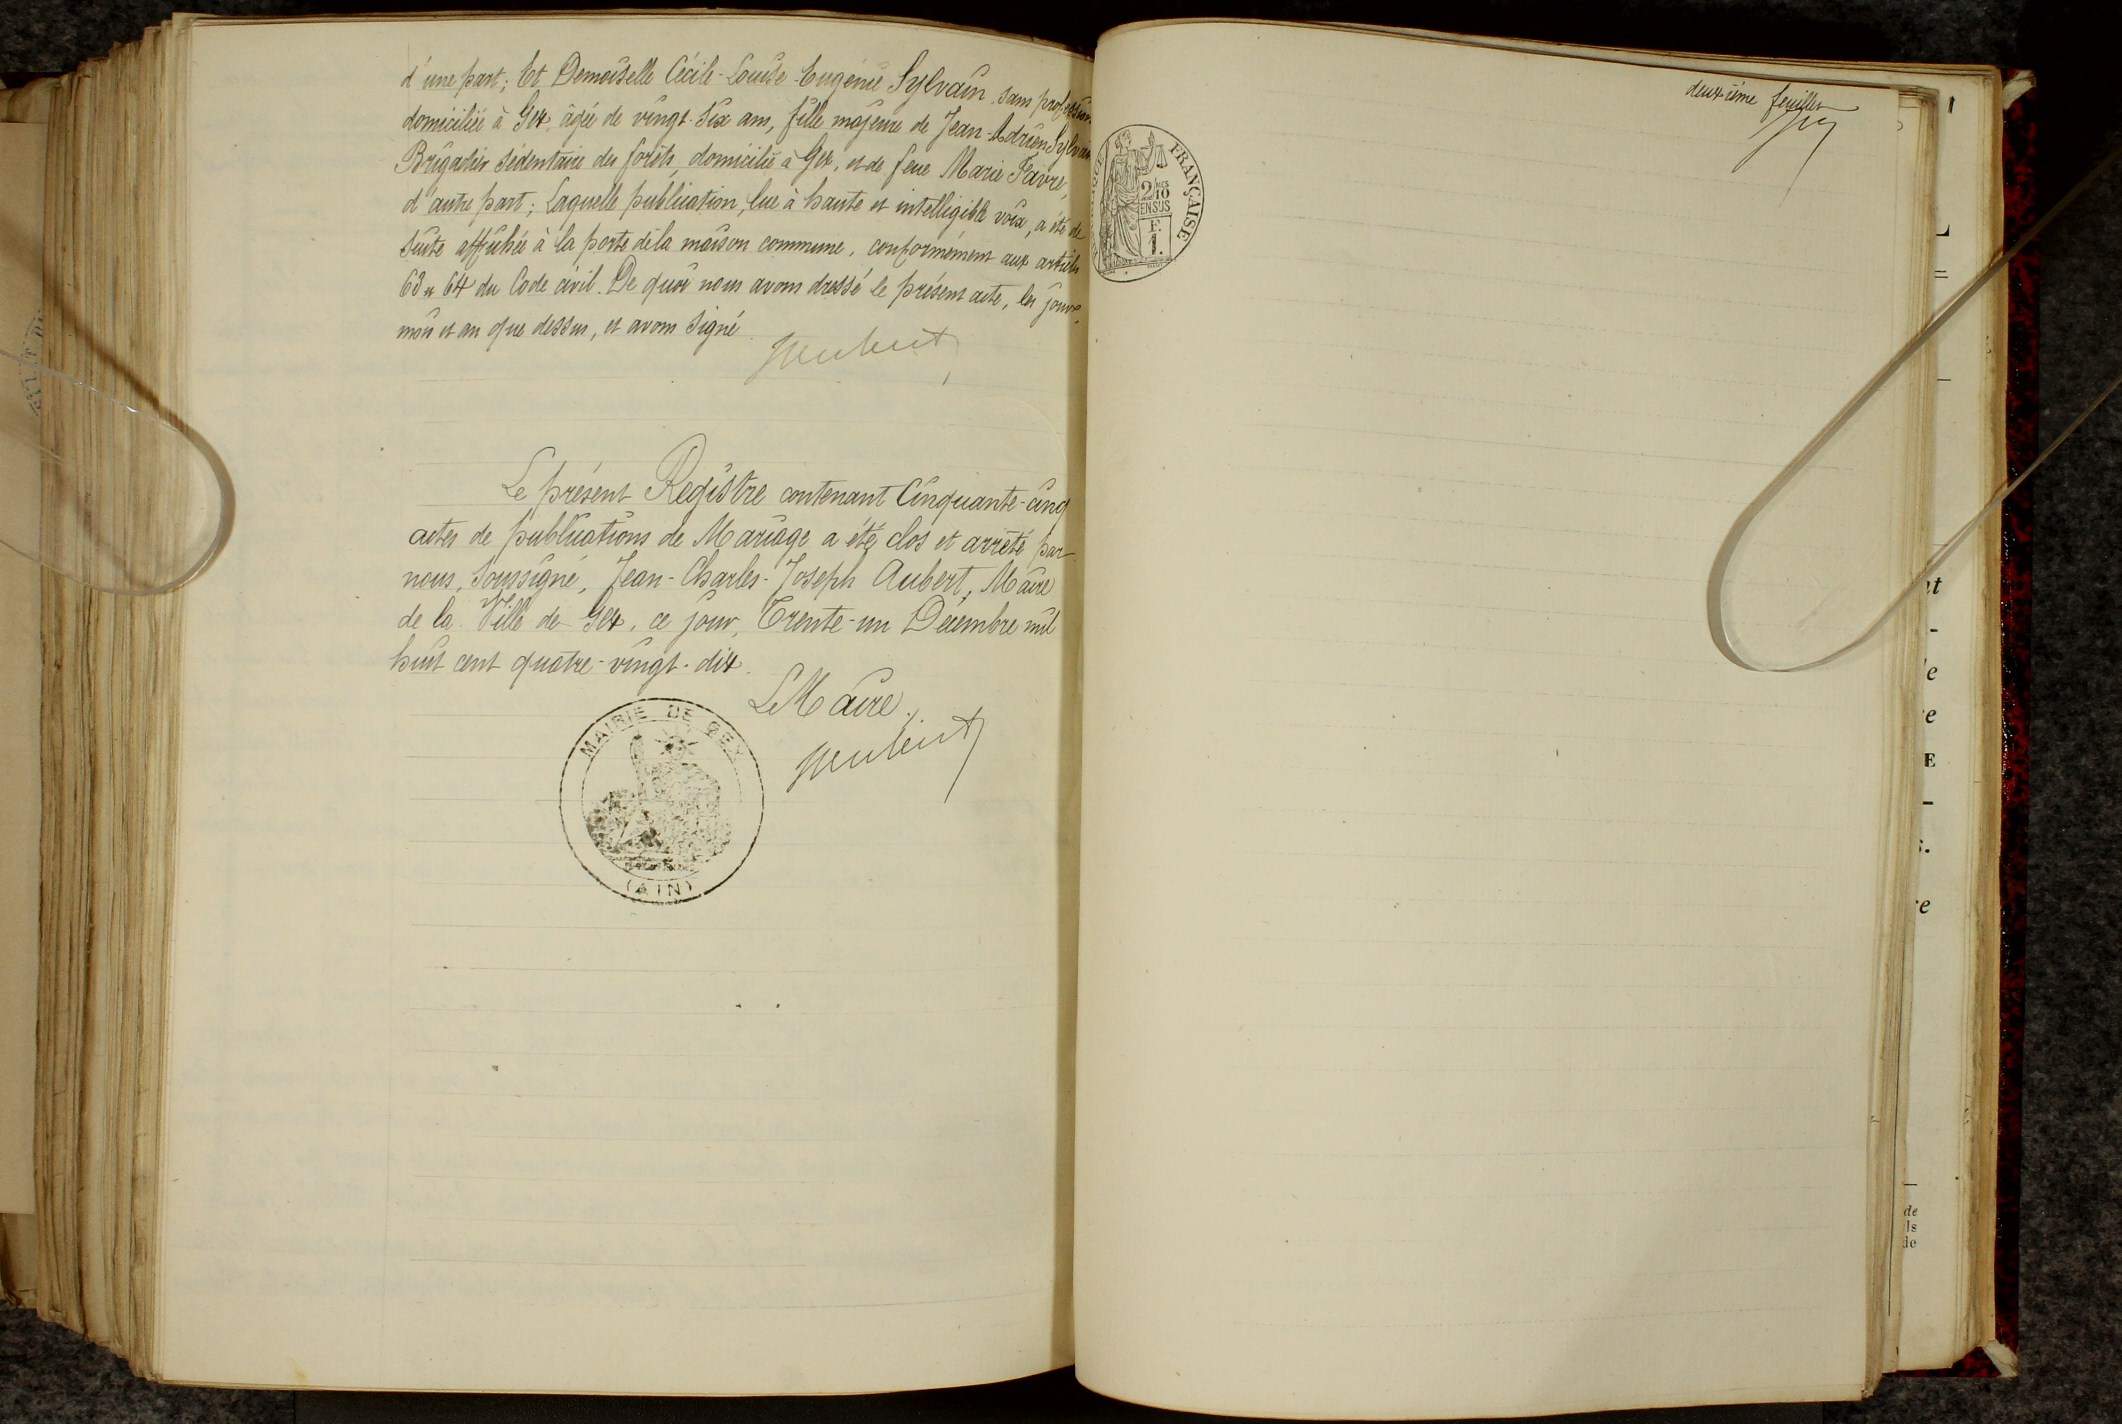 d'une part; Et Demoiselle Cécile-Louise-Eugénie Sylvain, sans profession
domiciliée à Gex, âgée de vingt-six ans, fille majeure de Jean-Adrien Sylvain
Brigadier sédentaire des forêts, domicilié à Gex, et de feue Marie Favre,
d'autre part; Laquelle publication, lue à haute et intelligible voix, a été de
suite affichée à la porte de la maison commune, conformément aux articles
63 et 64 du Code civil. De quoi nous avons dressé le présent acte, les jour,
mois et an que dessus, et avons signé.
Aubert
Le présent Registre contenant Cinquante-cinq
actes de publications de Mariage a été clos et arrêté par
nous, soussigné, Jean-Charles-Joseph Aubert, Maire
de la Ville de Gex, ce jour, Trente-un Décembre mil
huit cent quatre-vingt-dix.
Le Maire,
Aubert
MAIRIE DE GEX
(AIN)
deuxième feuillet
FRANÇAISE
2/10
EN SUS
F.
1.